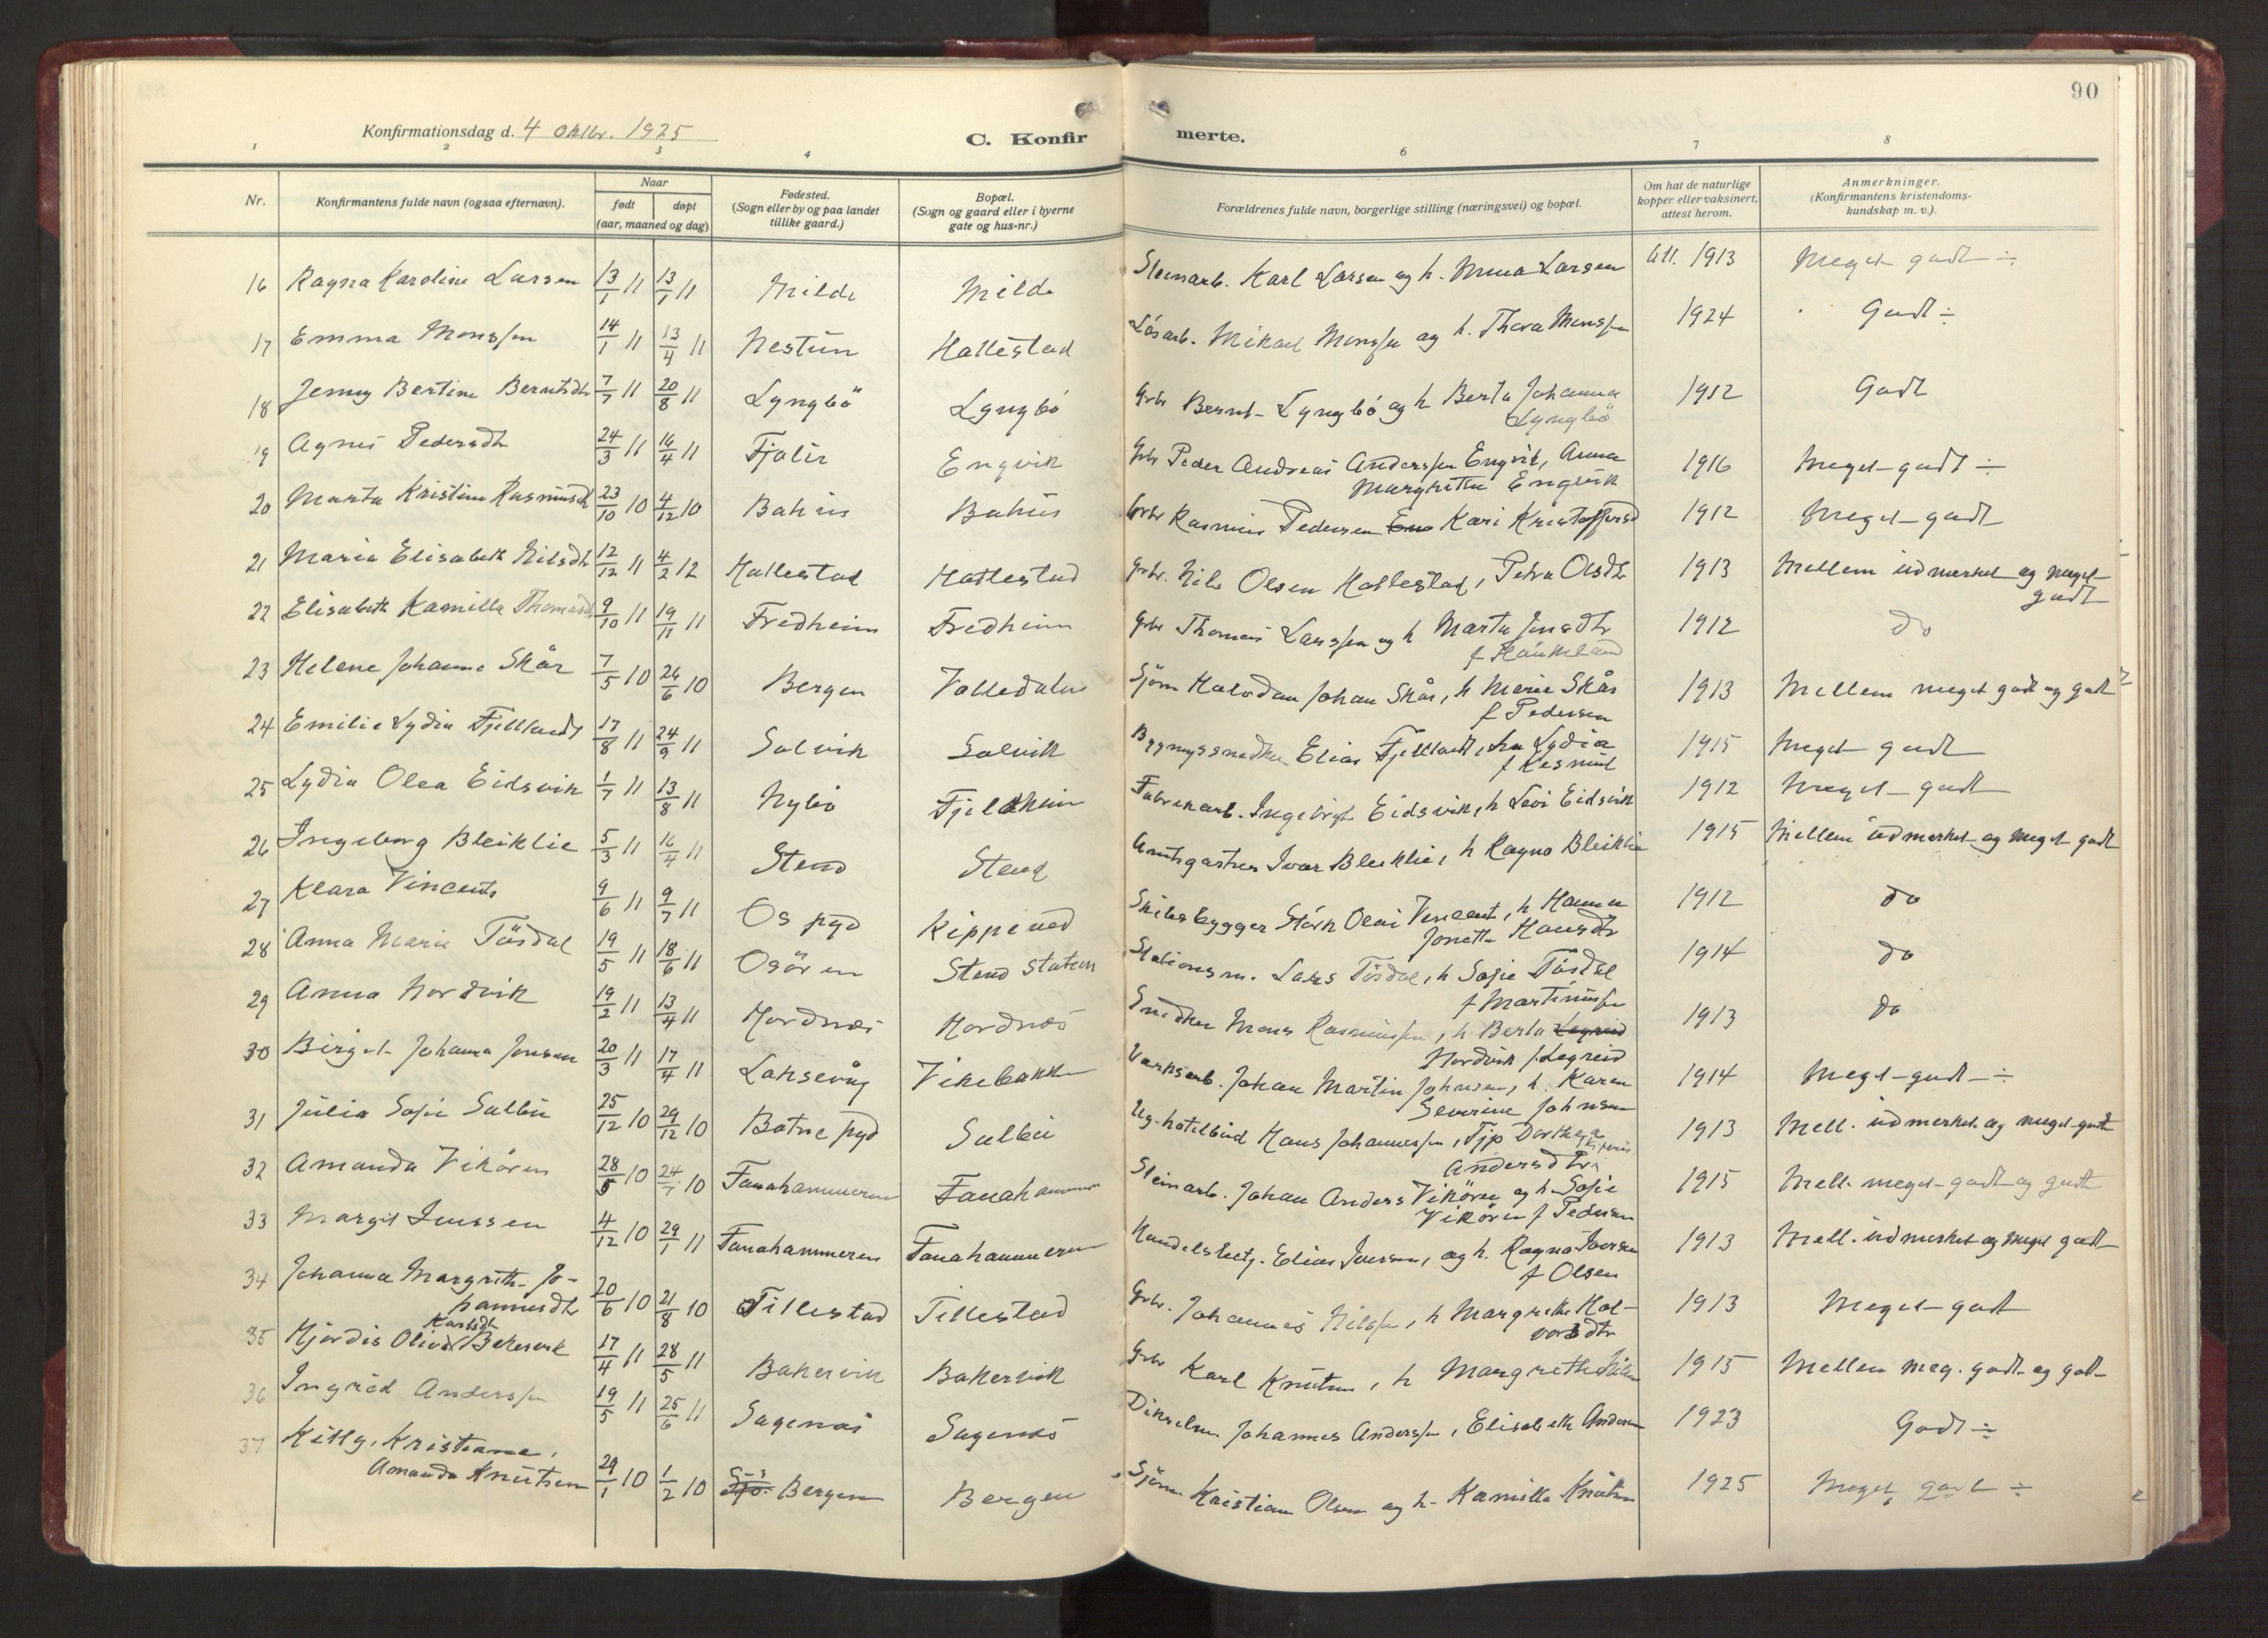 90
Konfirmationsdag d. 4 Oktbr. 1925
C. Konfir
merte.
1 2 3 4 6 7 8
Nr.
Konfirmantens fulde navn (ogsaa efternavn).
Naar
født
døpt
(aar, maaned og dag)
Fødested.
(Sogn eller by og paa landet
tillike gaard.)
Bopæl.
(Sogn og gaard eller i byerne
gate og hus-nr.)
Forældrenes fulde navn, borgerlige stilling (næringsvei) og bopæl.
Om hat de naturlige
kopper eller vaksinert,
attest herom.
Anmerkninger.
(Konfirmantens kristendoms-
kundskap m. v.).
16 Ragna Karoline Larsen 13/1 11 13/1 11 Milde Milde Stenarb. Karl Larsen og h. Larsen Att. 1913 Meget godt ÷
17 Emma Monssen 14/1 11 13/4 11 Nestun Hatlestad Lösarb. Mikael Monssen og h. Thora Monssen 1924 Godt ÷
18 Jenny Bertine Berntsdtr 7/7 11 20/8 11 Lyngbö Lyngbö Grbr Bernt Lyngbö og h Berta Johanna 1912 Godt
Lyngbö
19 Agnes Pedersdtr 24/3 11 16/4 11 Fjaler Engvik Grbr Peder Andreas Anderssen Engvik, Anna 1916 Meget godt ÷
Margrethe Engevik
20 Marta Kristine Rasmusdtr 23/10 10 4/12 10 Bahus Bahus Grbr Rasmus Pedersen Kari Kristoffersd 1912 Meget godt
21 Maria Elisabeth Nilsdtr 12/12 11 4/2 12 Hatlestad Hatlestad Grbr. Nils Olsen Hatlestad, Petra Olsdtr 1913 Mellem udmerket og meget
godt
22 Elisabeth Kamilla Thomasd 9/10 11 19/11 11 Fredheim Fredheim Grbr Thomas Larssen og h Marta Jonsdtr 1912 do
f Haukeland
23 Helene Johanne Skår 7/5 10 26/6 10 Bergen Sjöm Halvdan Johan Skår, h Marie Skår 1913 Mellem meget godt og godt
f Pedersen
24 Emilie Lydia Fjelltandt 17/8 11 24/9 11 Solvik Solvik Bygningssnedker Elias Fjelltandt, h Lydia 1915 Meget godt
25 Lydia Olea Eidsvik 1/7 11 13/8 11 Nybö Fjeldheim Fabrikarb. Ingebrigt Eidsvik, h Eidsvik 1912 Meget godt
26 Ingeborg Bleiklie 5/3 11 16/4 11 Stend Stend Amtsgartner Ivar Bleiklie, h Ragna Bleiklie 1915 Mellem udmerket og meget godt
27 Klara Vincents 9/6 11 9/7 11 Os pgd Kippened Skibsbygger Olai Vincent, h Hanna 1912 do
Jonette Hansdtr
28 Anna Marie Tösdal 19/5 11 18/6 11 Osören Stend station Stationsm. Lars Tösdal, h Sofie Tösdal 1914 do
f Martinussen
29 Anna Nordvik 19/2 11 13/4 11 Hordnes Hordnes Snedker Mons Rasmussen, h Berta Legreid 1913 do
Nordvik f Legreid
30 Birgit Johanna Jonsen 20/3 11 17/4 11 Laksevåg Vikebakken Verksarb. Johan Martin Johnsen, h. Karen 1914 Meget godt ÷
Severine Johnsen
31 Julia Sofie Salbu 25/12 10 29/12 10 Batne pgd Salbu Hans Johannessen, Tjp Dorthea 1913 Mell. udmerket og meget godt
Andersdtr
32 Amanda Vikören 28/5 10 24/7 10 Fanahammeren Fanahammeren Stenarb. Johan Anders Vikören og h Sofie 1915 Mell. meget godt og godt
Vikören f Pedersen
33 Margit Iverssen 4/12 10 29/1 11 Fanahammeren Fanahammeren Handelsbetj. Elias Iversen, og h. Ragna Iversen 1913 Mell. udmerket og meget godt
f Olsen
34 Johanna Margrethe Jo-
hannesdtr 20/6 10 21/8 10 Tillestad Tillestad Grbr. Johannes Nilssen, h Margrethe Hal- 1913 Meget godt
vorsdtr
Karlsdtr
35 Hjördis Olivia Bakervik 17/4 11 28/5 11 Bakervik Bakervik Grbr Karl Knutsen, h Margrethe 1915 Mellem meg. godt og godt
36 Ingrid Anderssen 19/5 11 25/6 11 Sagenes Sagenes Johannes Anderssen, Elisabeth Andersen 1923 Godt ÷
37 Kitty, Kristiane,
Amanda Knutsen 29/1 10 1/2 10 Bergen Bergen Sjöm Kristian Olsen og h. Kamilla Knutsen 1925 Meget godt ÷